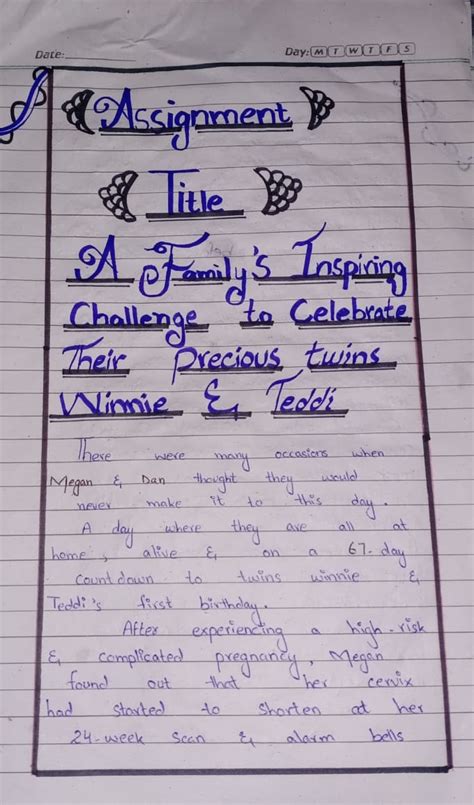 Date:
Day: M T W T F S
Assignment
Title
A Family's Inspiring
Challenge to Celebrate
Their Precious twins
Winnie & Teddi
There were many occasions when
Megan & Dan thought they would
never make it to this day.
A day where they are all at
home, alive & on a 67-day
count down to twins winnie &
Teddi's first birthday.
After experiencing a high-risk
& complicated pregnancy, Megan
found out that her cervix
had started to shorten at her
24-week scan & alarm bells